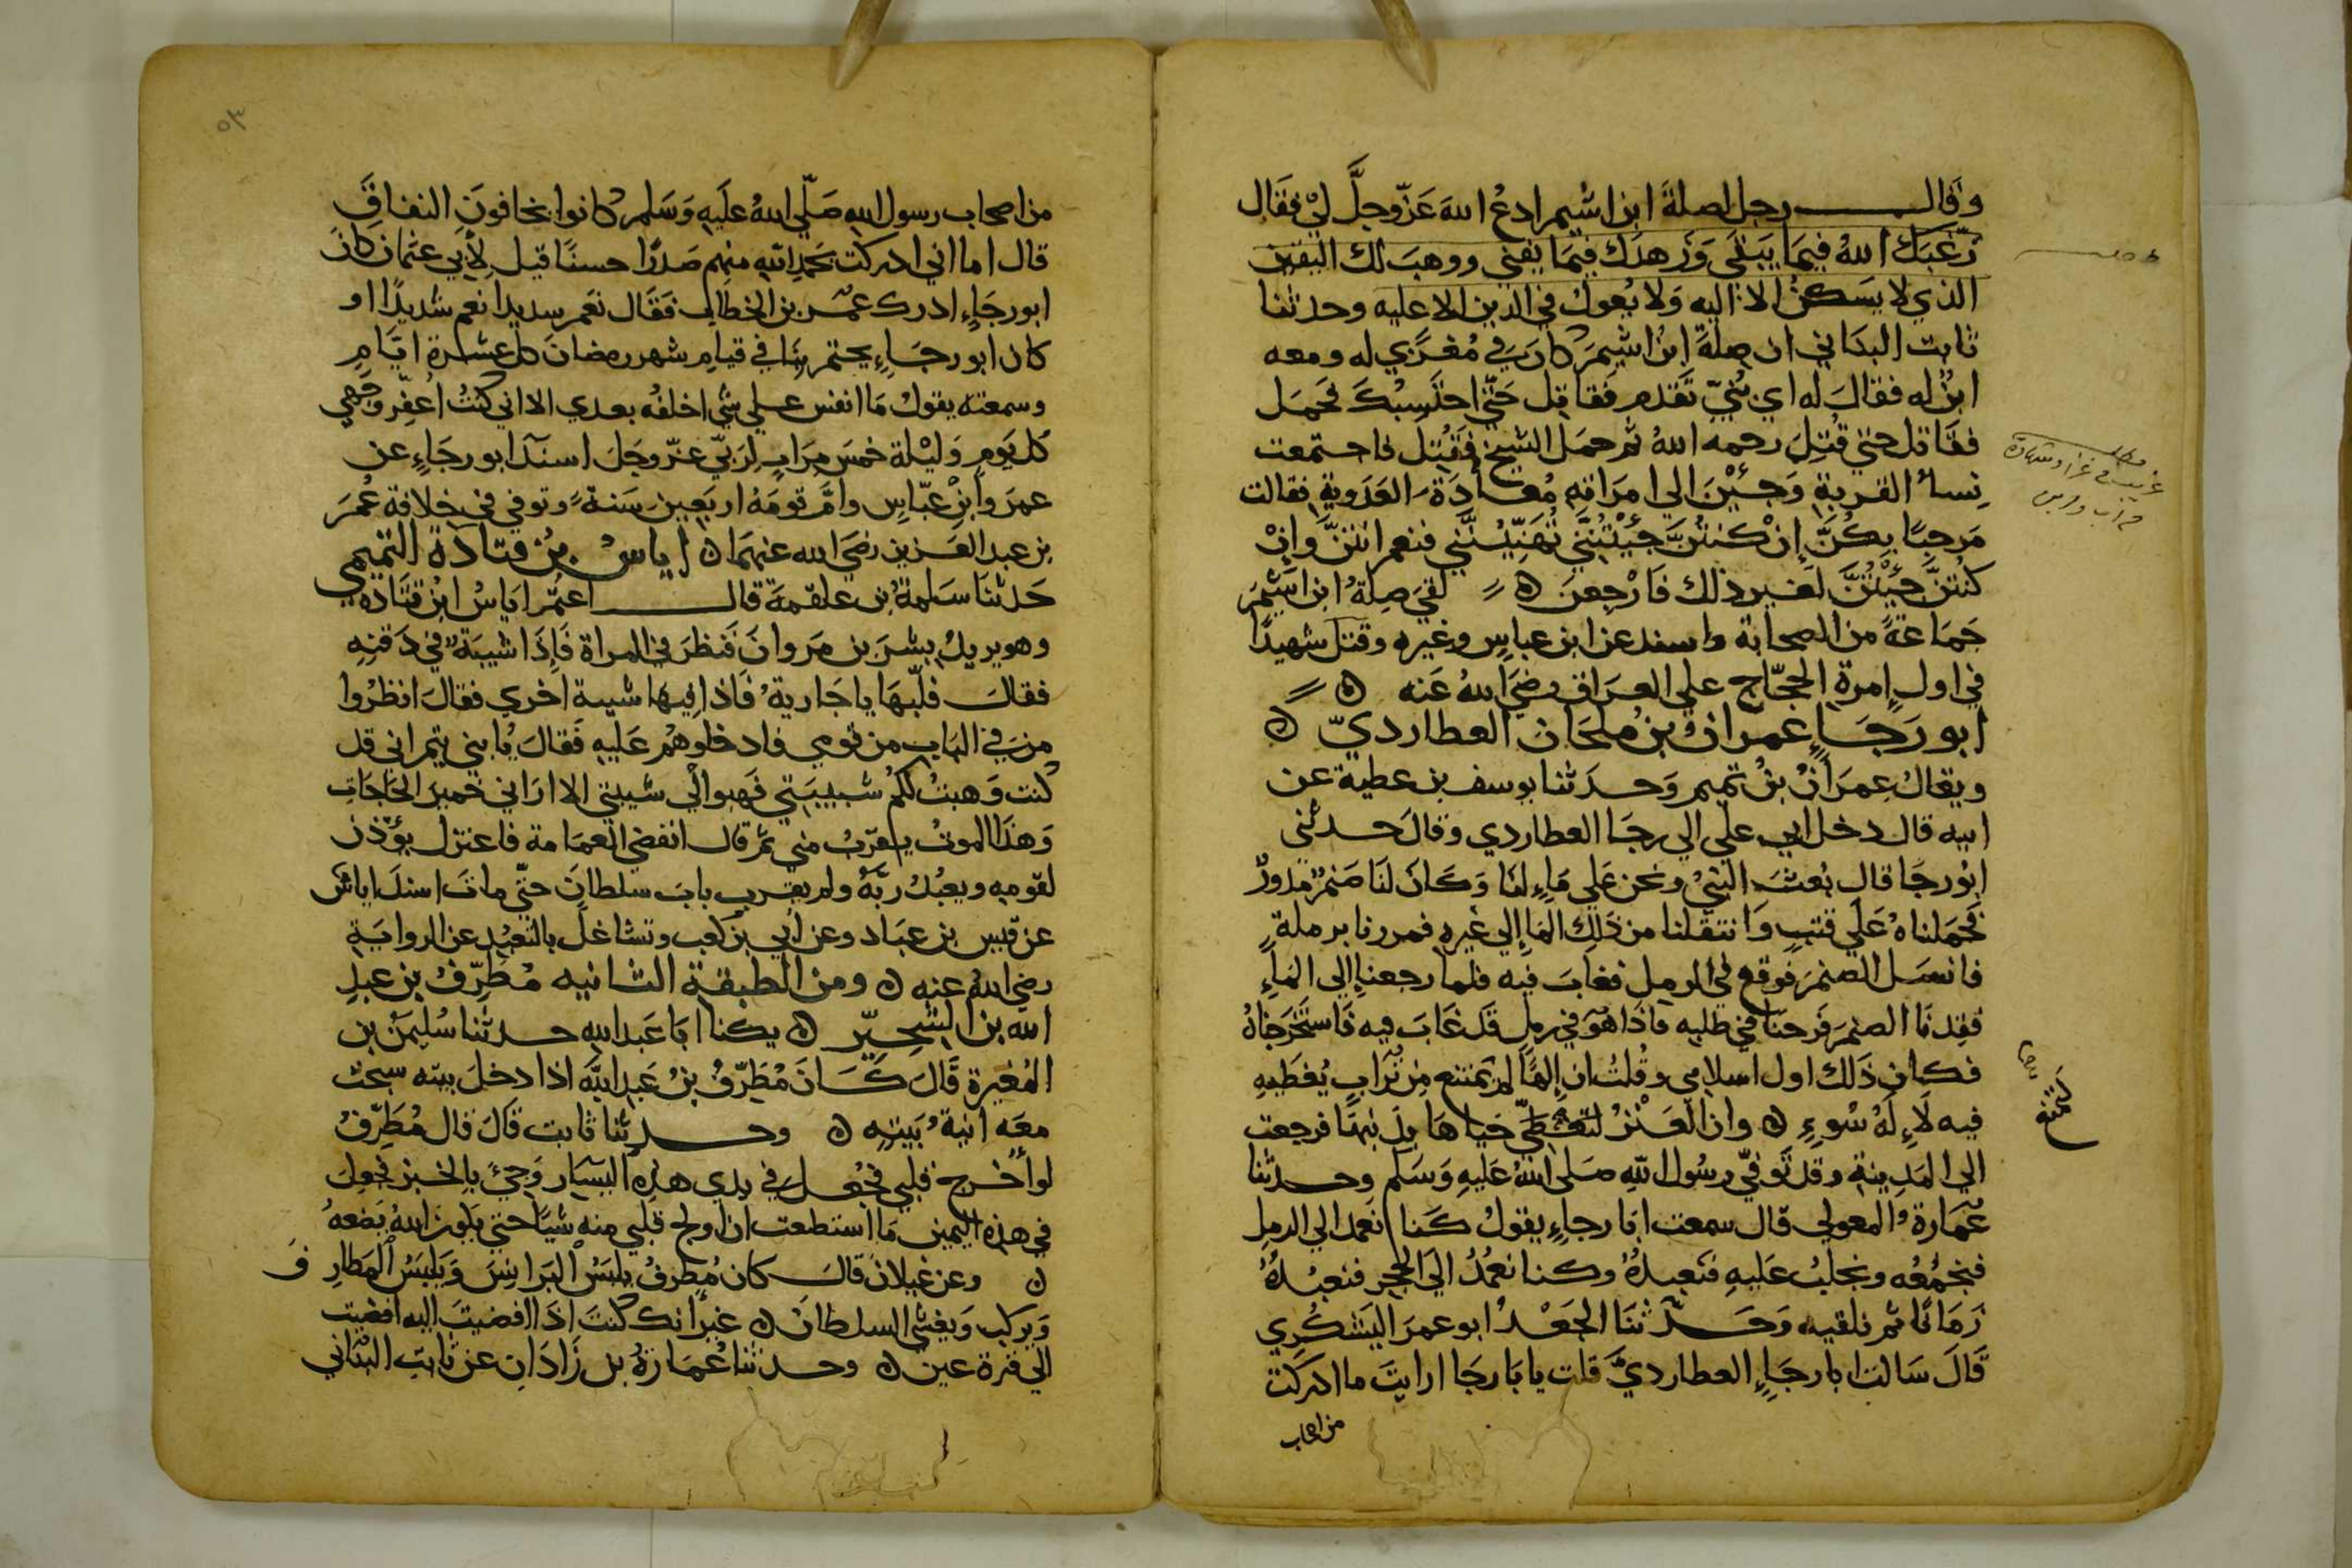 وقال رجل لصلة ابن اشيم ادع الله عز وجل لي فقال
رغبك الله فيما يبقى وزهدك فيما يفنى ووهب لك اليقين
الذي لا يسكن الا اليه ولا يعول في الدين الا عليه وحدثنا
ثابت البناني ان صلة ابن اشيم كان في مغزي له ومعه
ابن له فقال له اي بني تقدم فقاتل حتى احتسبك فحمل
فقاتل حتي قتل رحمه الله ثم حمل الشيخ فقتل فاجتمعت
نساء القرية وجئن الي امراته معاذة العدوية فقالت
مرحبا بكن ان كنتن جئتنني تهنيننني فنعم انتن وان
كنتن جئتن لغير ذلك فارجعن ه لقي صلة ابن اشيم
جماعة من الصحابة واسند عن ابن عباس وغيره وقتل شهيدا
في اول امرة الحجاج علي العراق رضي الله عنه ه
ابو رجاء عمران بن ملحان العطاردي ه
ويقال عمران بن تميم وحدثنا يوسف بن عطية عن
ابيه قال دخل ابي علي ابي رجا العطاردي وقال حدثني
ابو رجا قال بعث النبي ونحن علي ماء لنا وكان لنا صنم مدور
فحملناه علي قتب وانتقلنا من ذلك الماء الي غيره فمررنا برملة
فانسل الصنم فوقع في الرمل فغاب فيه فلما رجعنا الي الماء
فقدنا الصنم فرحنا في طلبه فاذا هو في رمل قد غاب فيه فاستخرجناه
فكان ذلك اول اسلامي وقلت ان الها لم يمتنع من تراب يغطيه
فيه لاله سوء ه وان العنز لتغطي حياها بذنبها فرجعت
الي المدينة وقد توفي رسول الله صلى الله عليه وسلم وحدثنا
عمارة المعولي قال سمعت ابا رجاء يقول كنا نعمد الي الرمل
فنجمعه ونحلب عليه فنعبده وكنا نعمد الي الحجر فنعبده
زمانا ثم نلقيه وحدثنا الجعد ابو عمر اليشكري
قال سالت ابا رجاء العطاردي قلت يا با رجا ارايت ما ادركت
من اصحاب
٥٣
من اصحاب رسول الله صلى الله عليه وسلم كانوا يخافون النفاق
قال اما اني ادركت بحمد الله منهم صدرا حسنا قيل لابي عثمان كان
ابو رجاء ادرك عمر بن الخطاب فقال نعم شديدا نعم شديدا او
كان ابو رجاء يختم بنا في قيام شهر رمضان كل عشرة ايام
وسمعته يقول ما انفس علي شي اخلفه بعدي الا اني كنت اعفر وجهي
كل يوم وليلة خمس مرات لربي عز وجل اسند ابو رجاء عن
عمر وابن عباس وام قومه اربعين سنة وتوفي في خلافة عمر
بن عبد العزيز رضي الله عنهما ه اياس بن قتادة التميمي
حدثنا سلمة بن علقمة قال اعتم اياس ابن قتاده
وهو يريد بشر بن مروان فنظر في المراة فاذا شيبة في ذقنه
فقال فليها يا جارية فاذا فيها شيبة اخري فقال انظروا
من في الباب من قومي فادخلوهم عليه فقال يا بني تيم اني قد
كنت وهبت لكم شبيبتي فهبوا لي شيبتي الا اراني حمير الحاجات
وهذا الموت يقرب مني ثم قال انفضي العمامة فاعتزل يوذن
لقومه ويعبد ربه ولم يقرب باب سلطان حتى مات اسند اياس
عن قيس بن عباد وعن ابي بن كعب وتشاغل بالتعبد عن الرواية
رضي الله عنه ه ومن الطبقة الثانيه مطرف بن عبد
الله بن الشخير ه يكنا ابا عبد الله حدثنا سليمن بن
المغيرة قال كان مطرف بن عبد الله اذا دخل بيته سبحت
معه انية بيته ه وحدثنا ثابت قال قال مطرف
لو اخرج قلبي فجعل في يدي هذه اليسار وجئ بالخبز فجعل
في هذه اليمين ما استطعت ان اولج قلبي منه شيا حتى يكون الله يضعه
ه وعن غيلان قال كان مطرف يلبس البرانس ويلبس المطارف
ويركب ويغشى السلطان ه غير انك كنت اذا افضيت اليه افضيت
الي قرة عين ه وحدثنا عمارة بن زاذان عن ثابت البناني